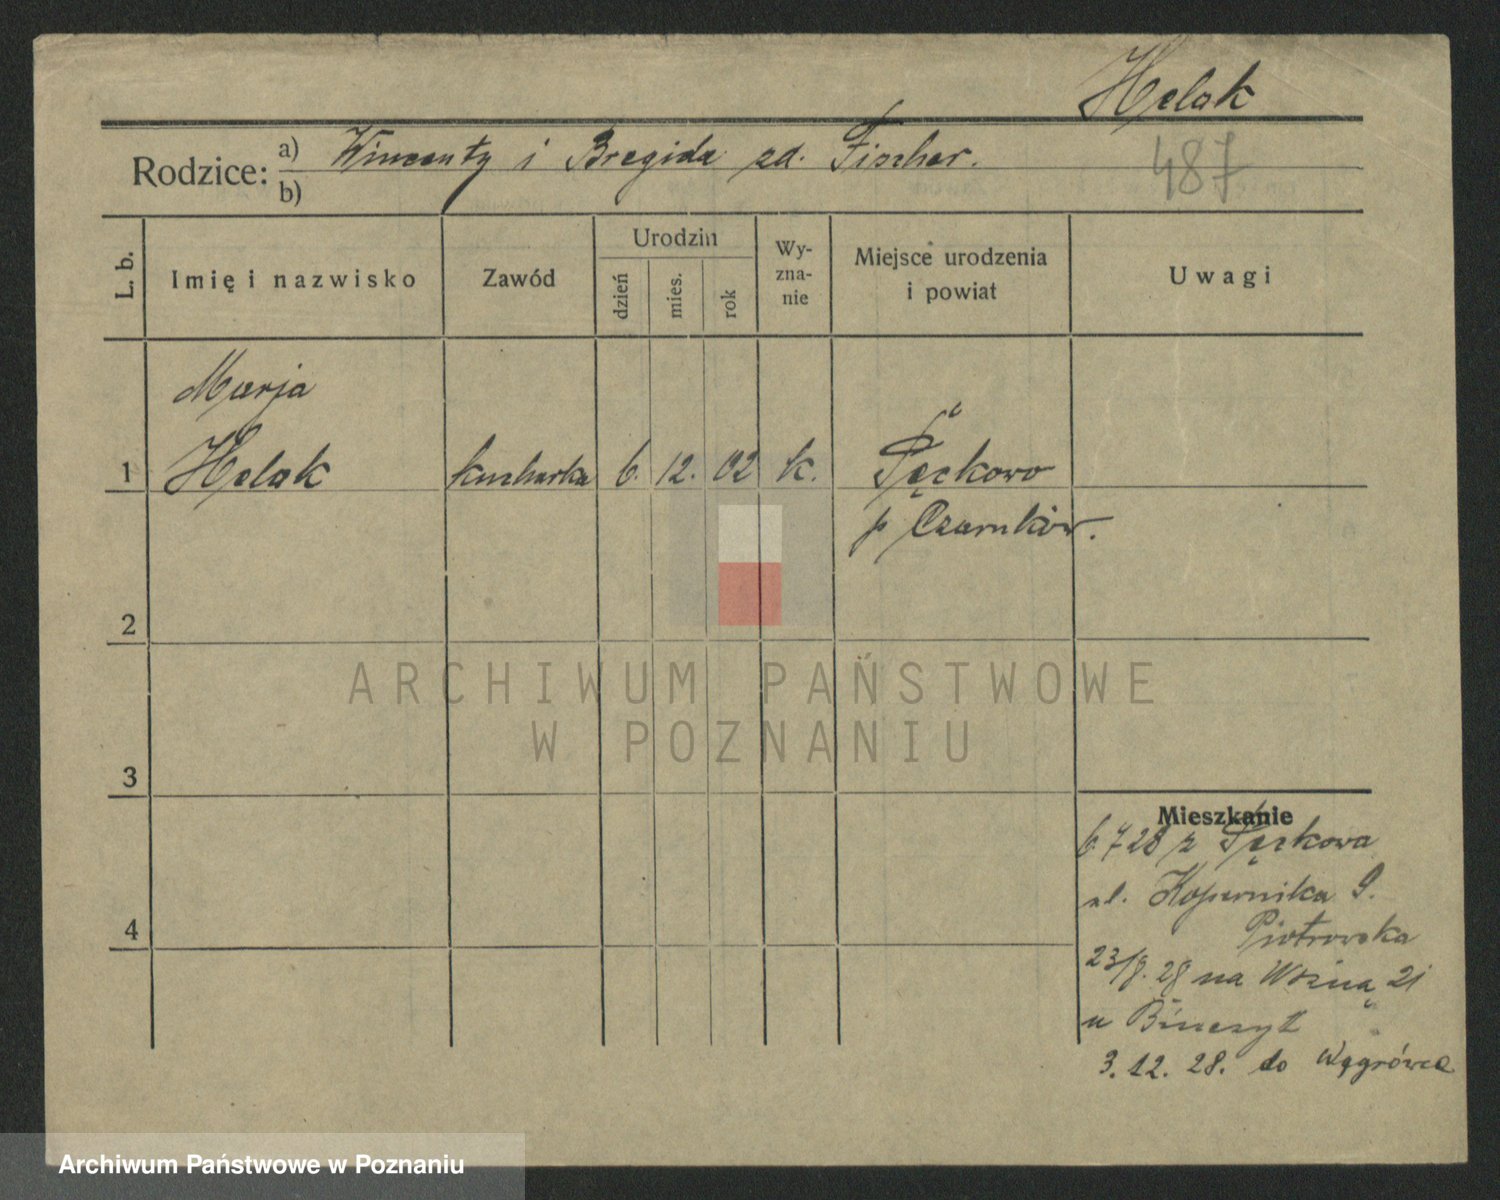 Helak
Rodzice: a) Wincenty i Bregida zd. Fischer.
b)
487
L. b.
Imię i nazwisko
Zawód
Urodzin
dzień
mies.
rok
Wy-
zna-
nie
Miejsce urodzenia
i powiat
Uwagi
Marja
1 Helak kucharka 6. 12. 02 k. Pęckowo
p Czarnków.
2
ARCHIWUM PAŃSTWOWE
W POZNANIU
3
Mieszkanie
6 7 28 z Pęckowa
ul. Kopernika 9.
Piotrowska
4
23/8. 28 na Woźną 21
u
3. 12. 28. do Wągrówca
Archiwum Państwowe w Poznaniu